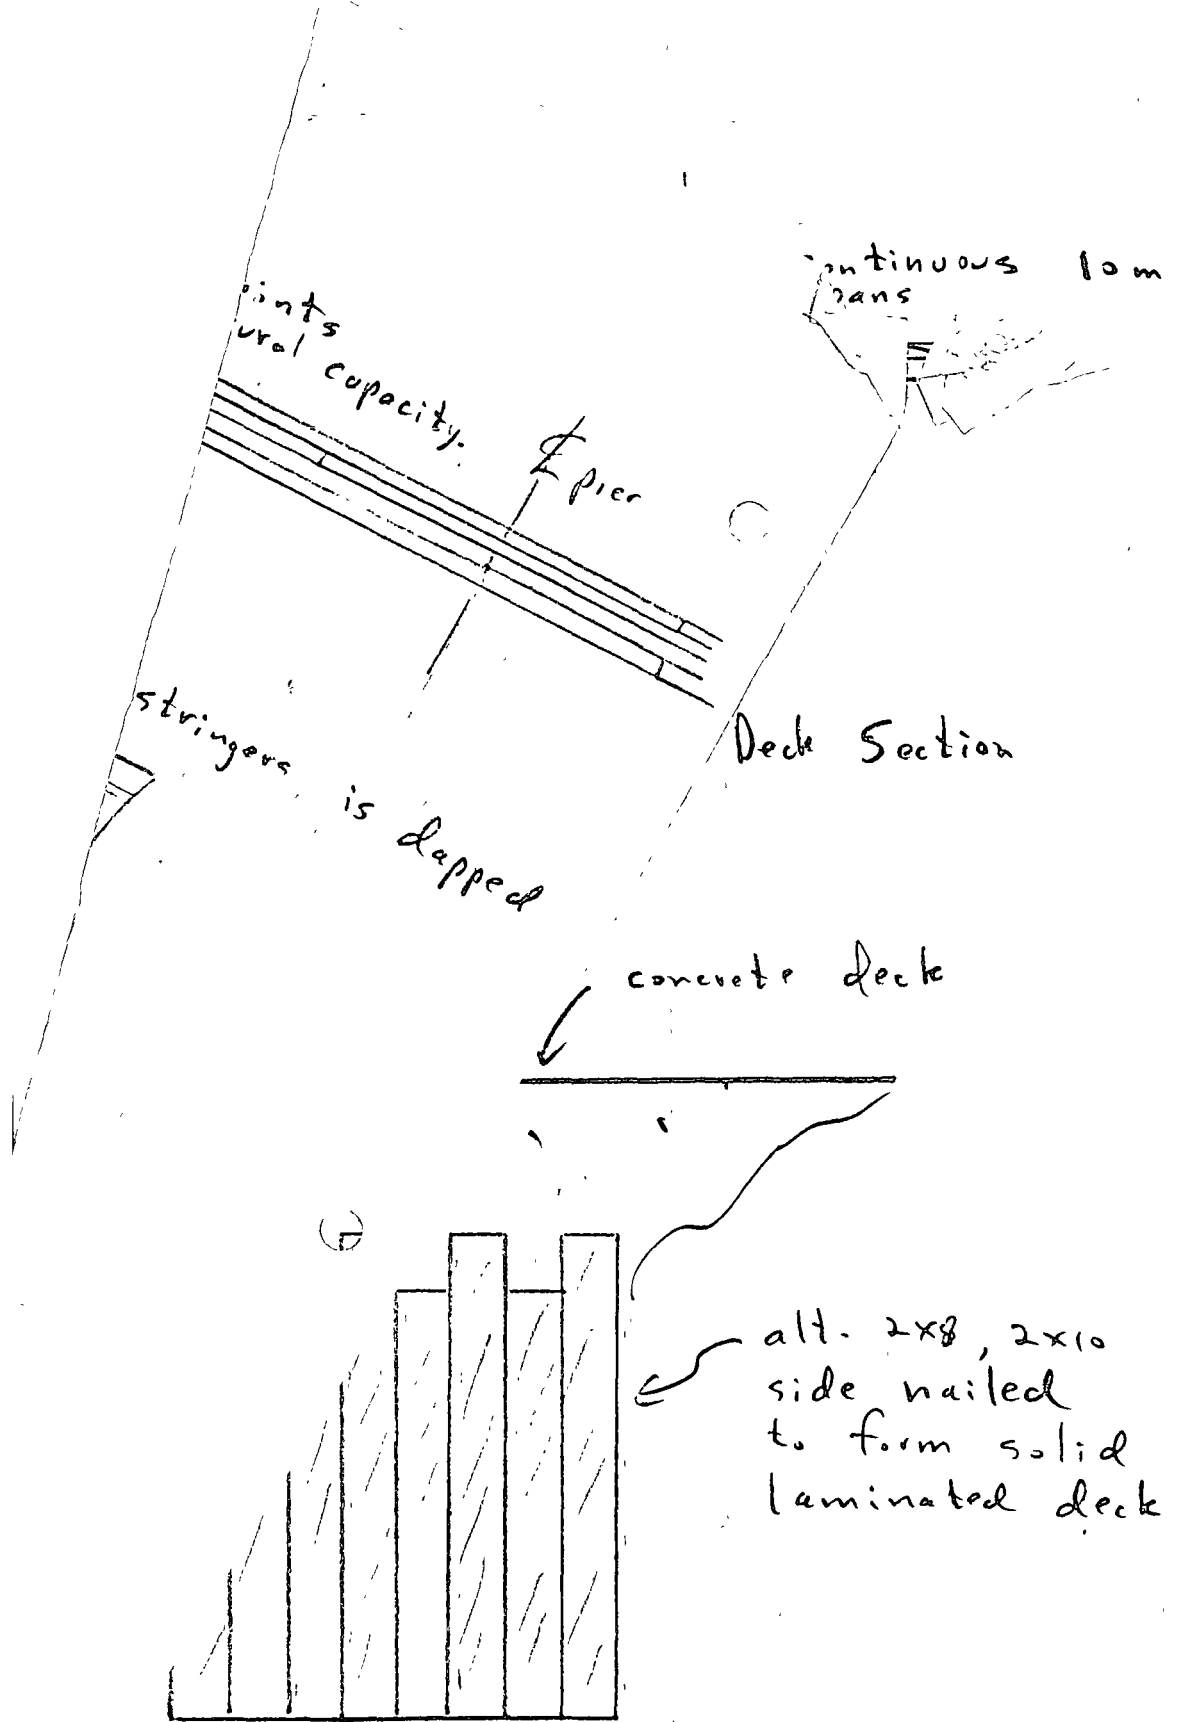 10m
capacity.
℄ pier
stringers is dapped
Deck Section
concrete deck
alt. 2x8, 2x10
side nailed
to form solid
laminated deck